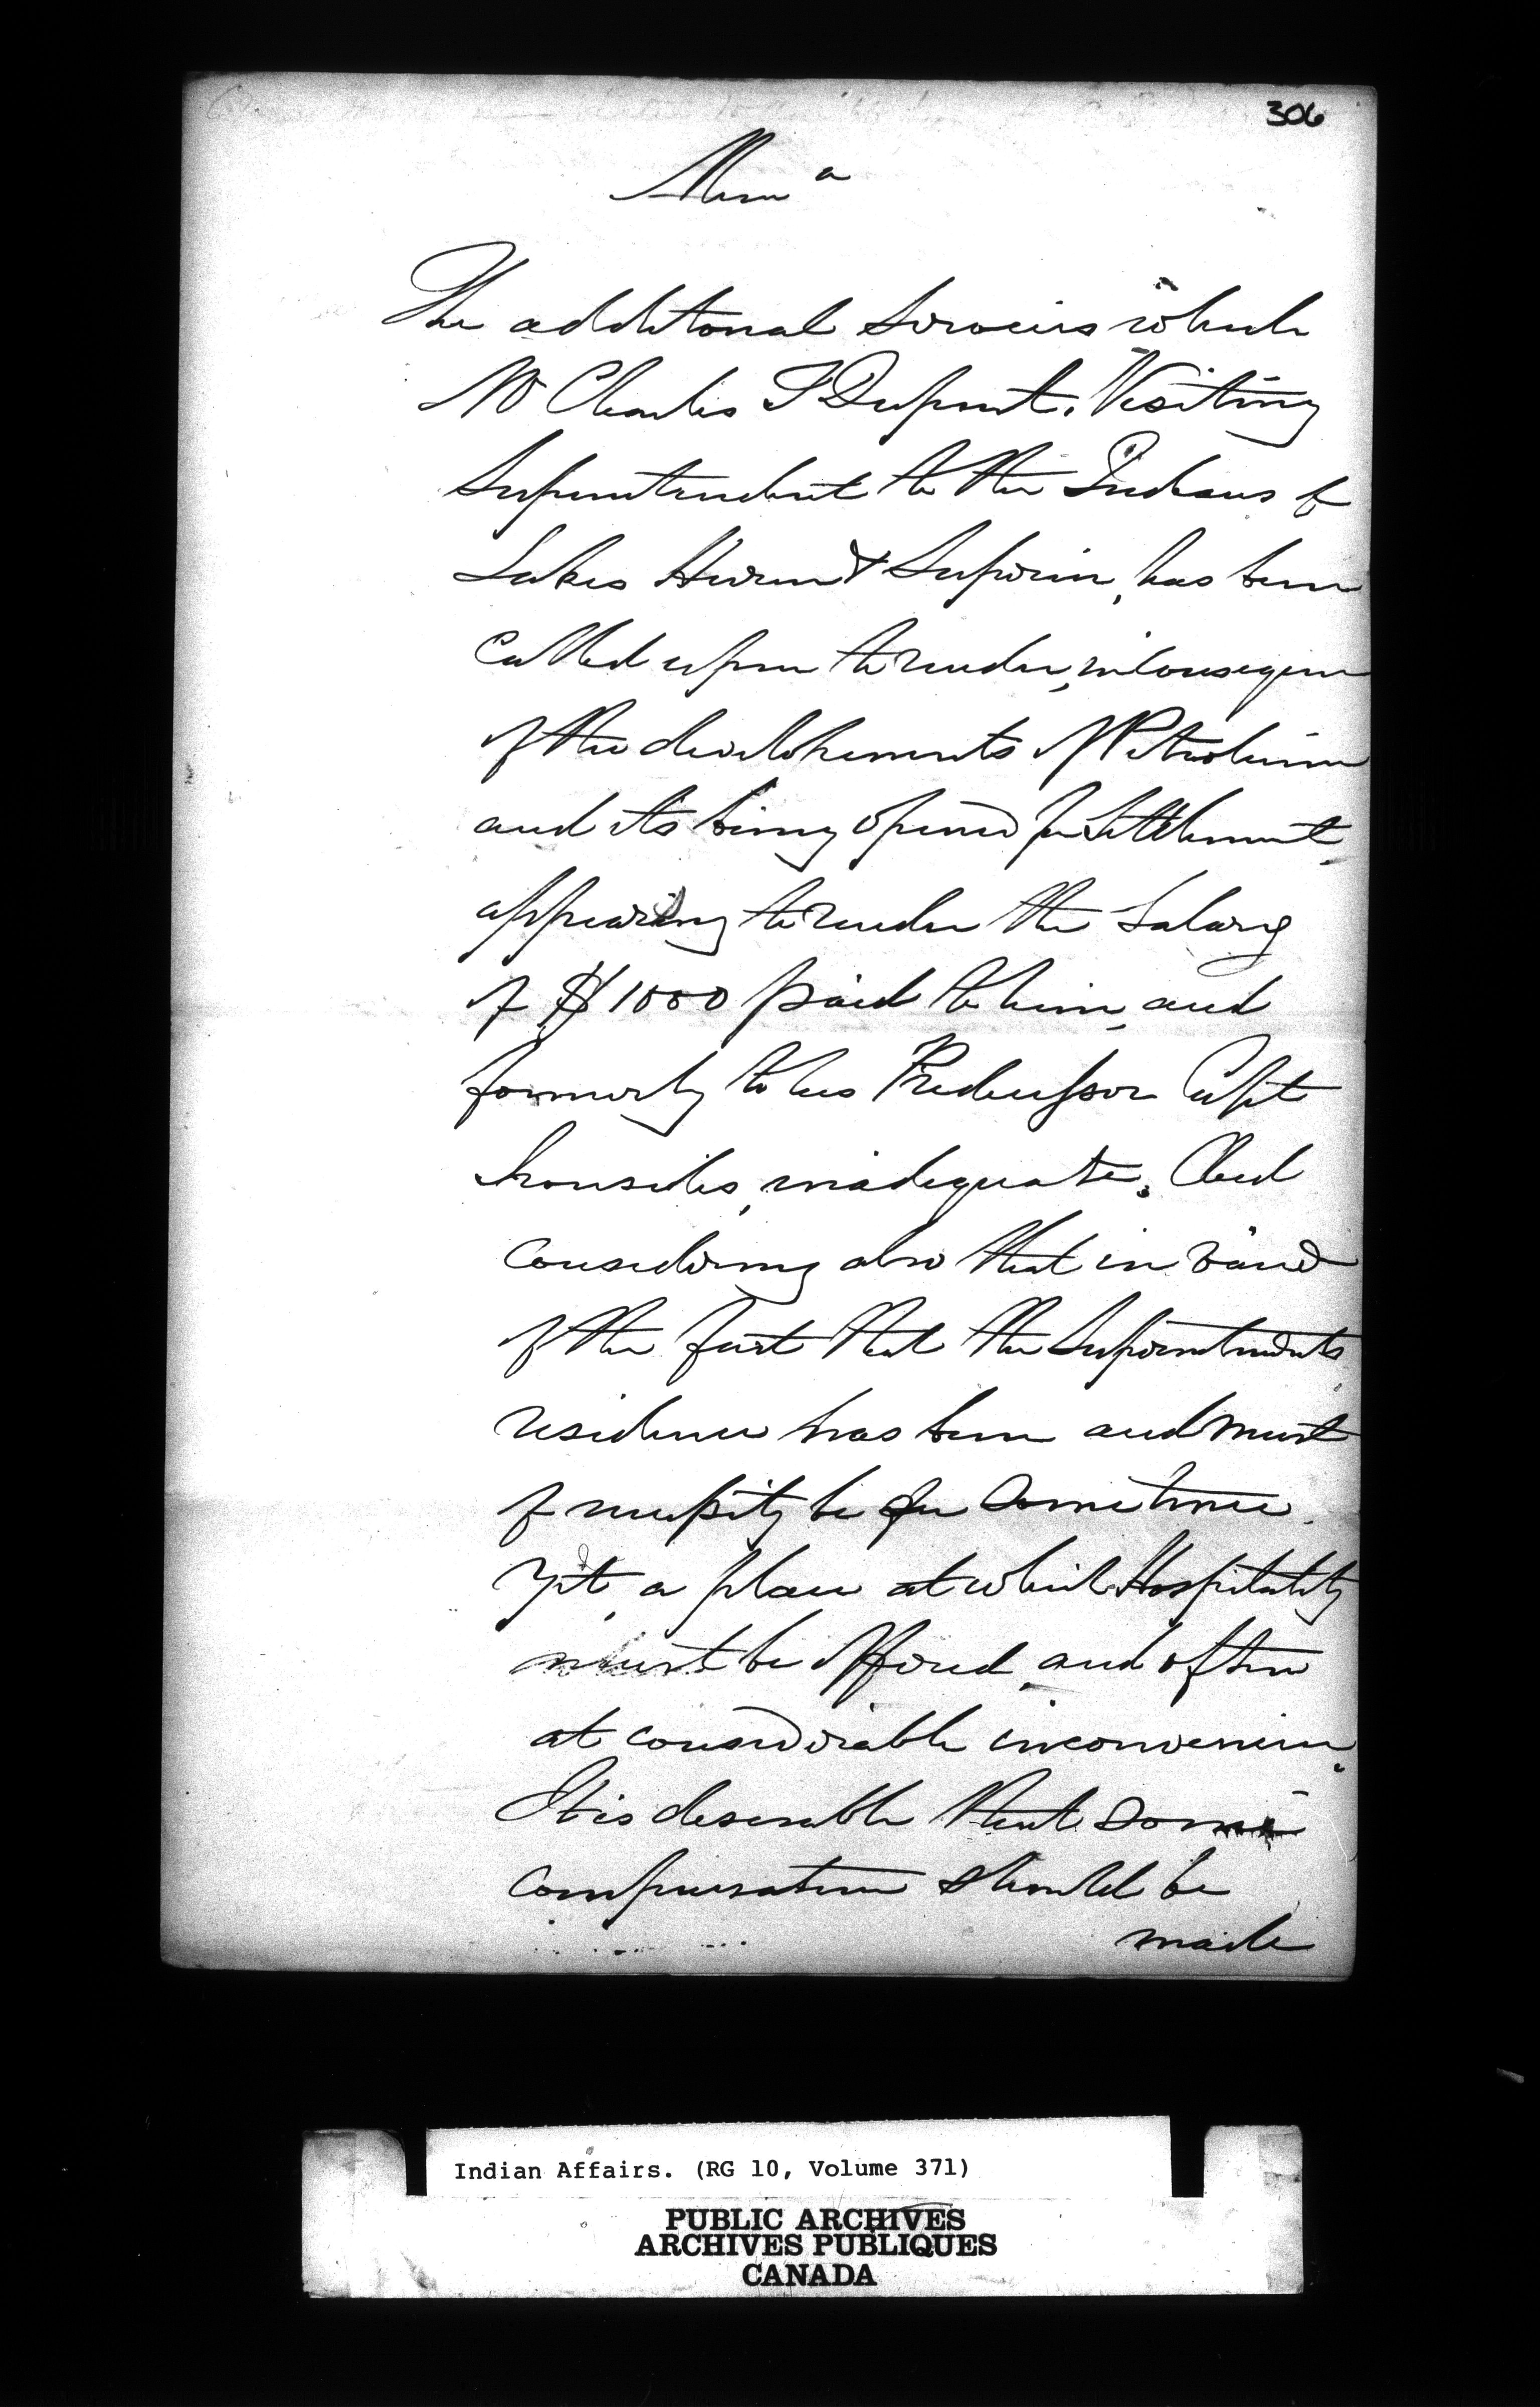 306
Mem a
The additonal Services which
Mr Charles T Dupont, Visiting
Superintendent to the Indians of
Lakes Huron & Superior, has been
called upon to render, in consequence
of the developements of Petroleum
and its being opened for Settlement,
appearing to render the Salary
of $1000 paid to him, and
formerly to his Predecessor Capt
Ironsides, inadequate. And
considering also that in
of the fact that the Superintendents
residence has been and must
of necessity be for some time
yet, a place at which Hospitality
must be offered, and often
at considerable inconvenience.
It is desirable that some
compensation should be
made
Indian Affairs. (RG 10, Volume 371)
PUBLIC ARCHIVES
ARCHIVES PUBLIQUES
CANADA